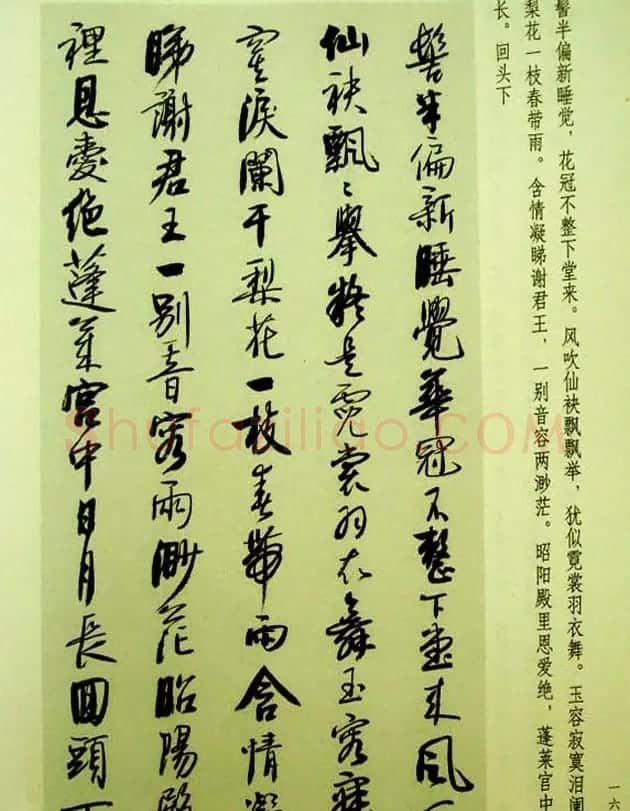 髻半偏新睡觉，花冠不整下堂来。风吹仙袂飘飘举，犹似霓裳羽衣舞。玉容寂寞泪阑
梨花一枝春带雨。含情凝睇谢君王，一别音容两渺茫。昭阳殿里恩爱绝，蓬莱宫中
长。回头下
一六
髻半偏新睡覺華冠不整下堂来風
仙袂飄〻舉猶是霓裳羽衣舞玉容寂
寞淚闌干梨花一枝春帶雨含情凝
睇謝君王一别音容兩渺茫昭陽殿
裡恩愛绝蓬萊宫中日月長回頭下
Shufaziliao.COM